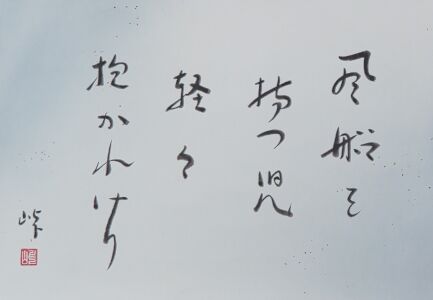 風船を
持つ児
軽々
抱かれけり
峠